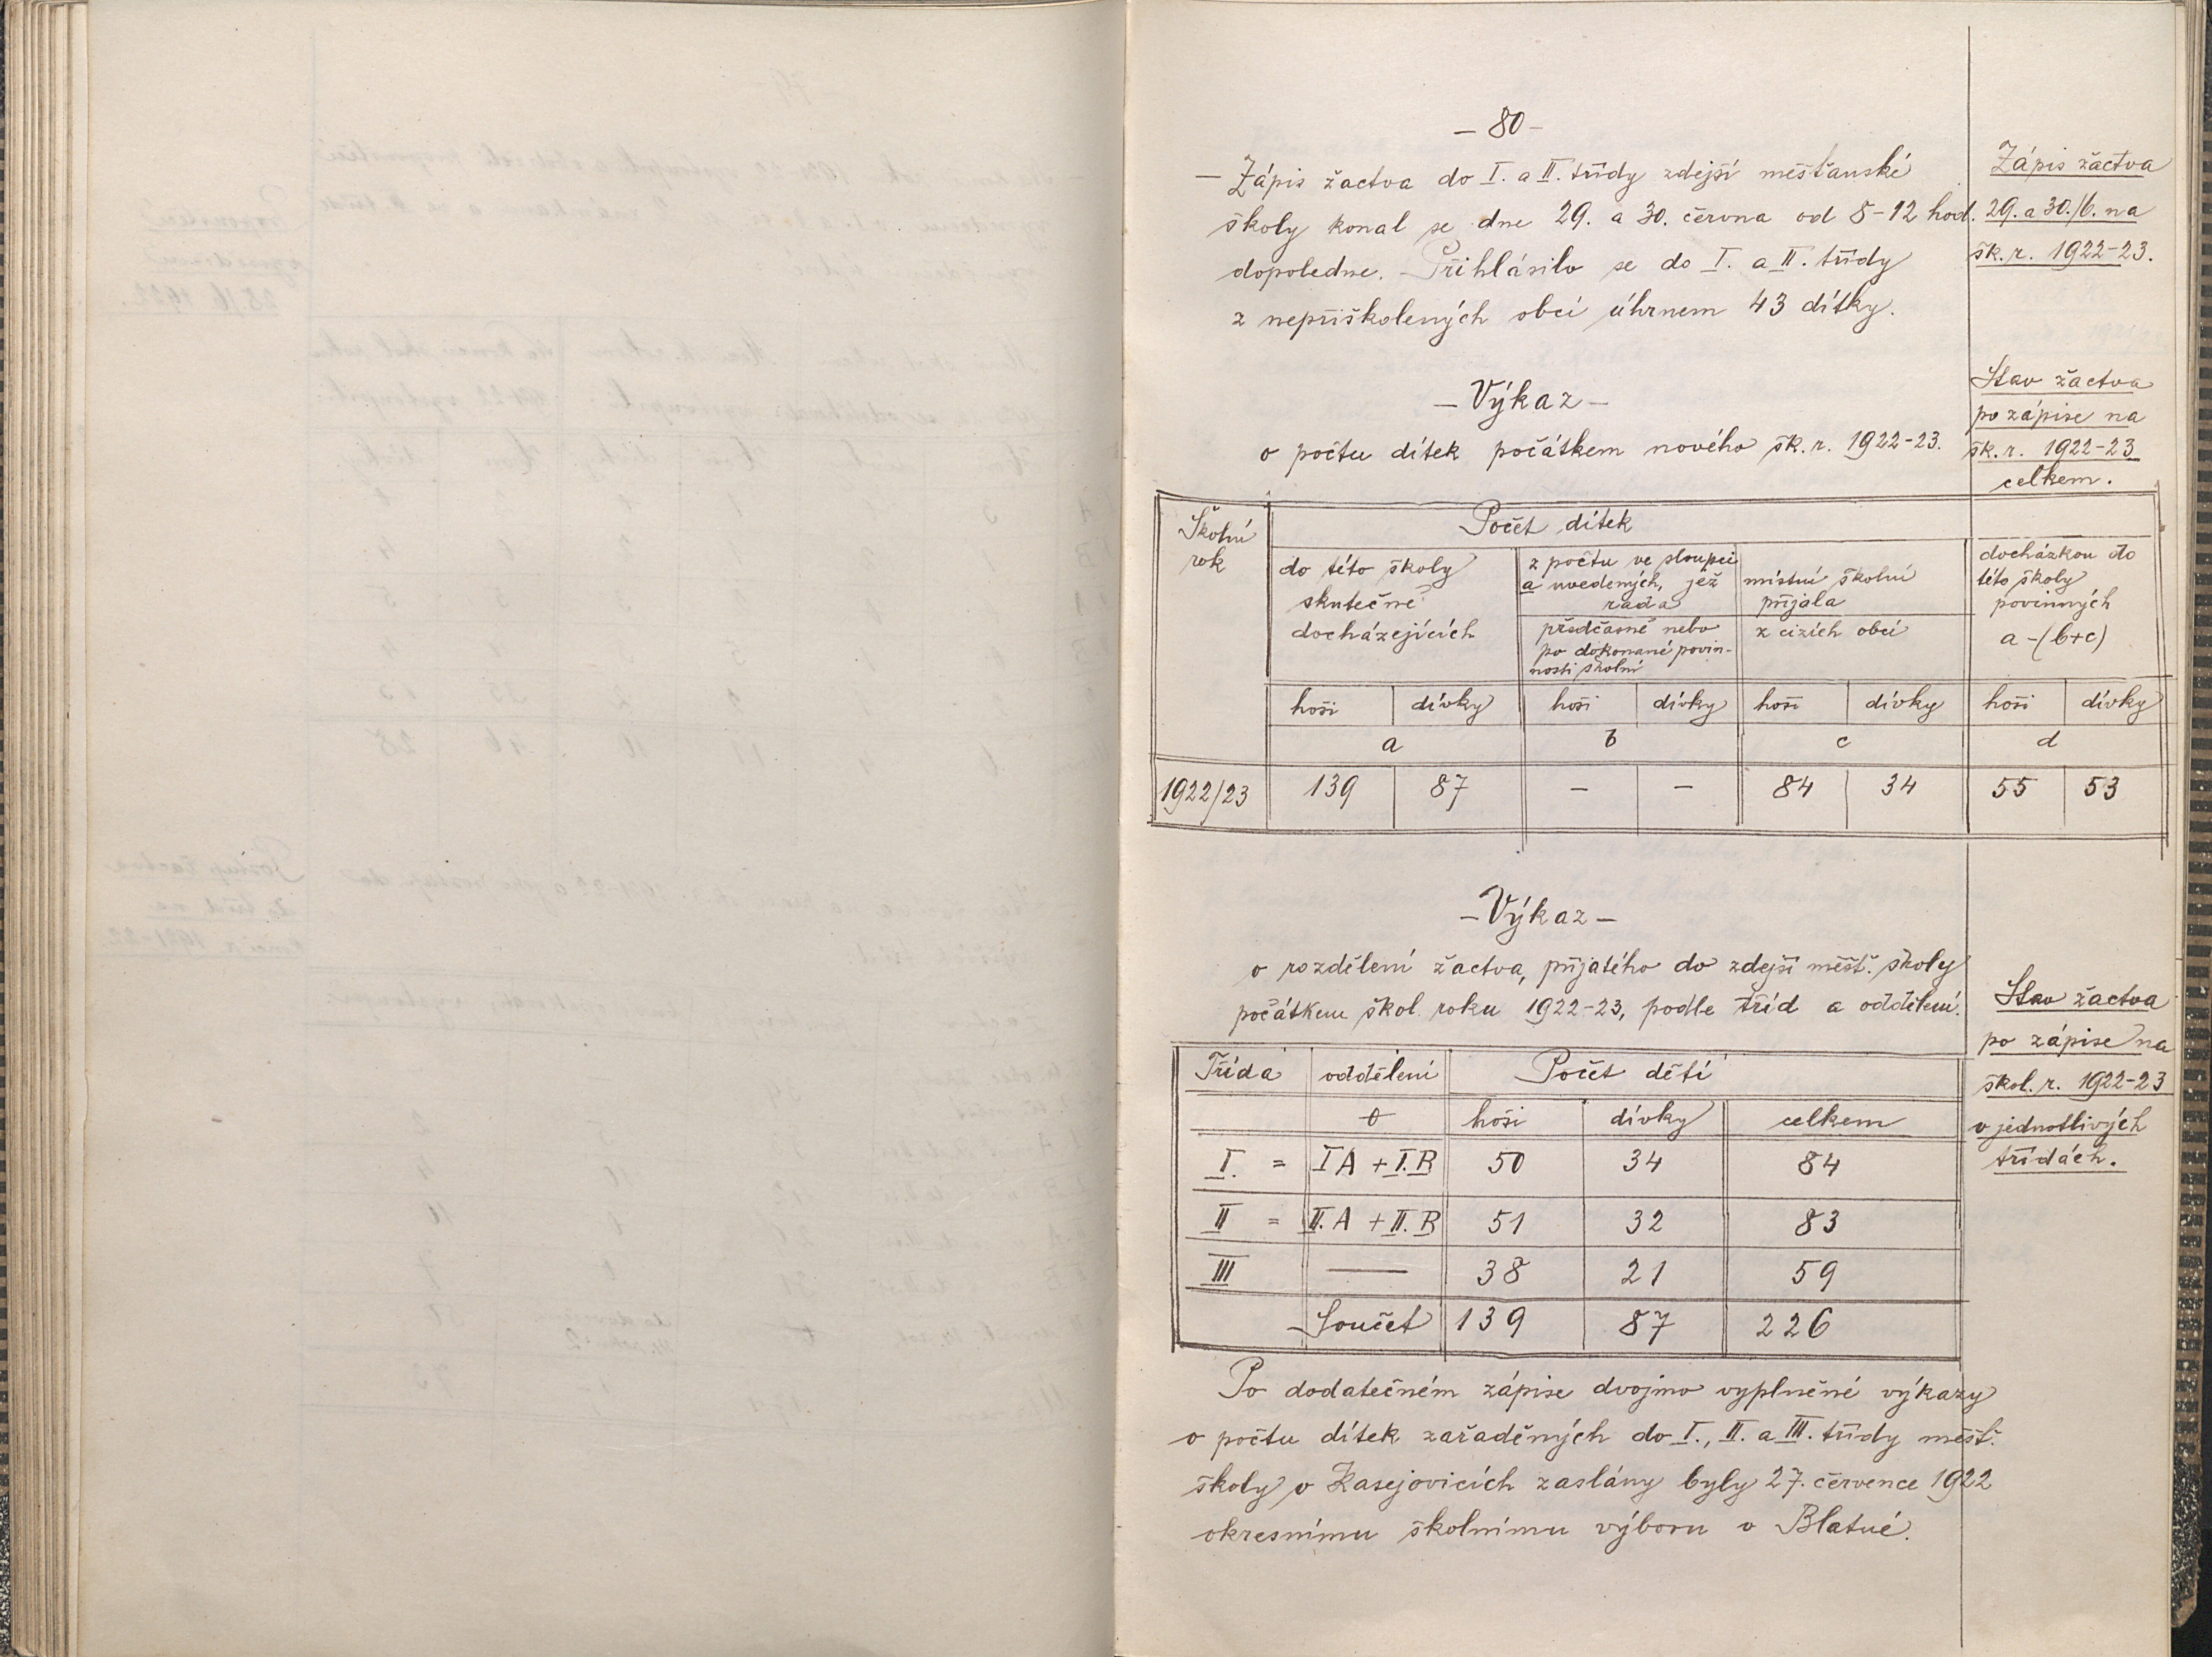 – 80 –
– Zápis žactva do I. a II. třídy zdejší měšťanské
školy konal se dne 29. a 30. června od 8–12 hod.
dopoledne. – Přihlásilo se do I. a II. třídy
z nepřiškolených obcí úhrnem 43 dítky.
Zápis žactva
29. a 30./6. na
šk. r. 1922–23.
– Výkaz –
o počtu dítek počátkem nového šk. r. 1922–23.
Stav žactva
po zápise na
šk. r. 1922–23
celkem.
Školní
rok
Počet dítek
do této školy
skutečně
docházejících
z počtu ve sloupci
a uvedených, jež
rada
místní školní
přijala
předčasně nebo
po dokonané povin-
nosti školní
z cizích obcí
docházkou do
této školy
povinných
a – (b+c)
hoši dívky hoši dívky hoši dívky hoši dívky
a b c d
1922/23 139 87 – – 84 34 55 53
– Výkaz –
o rozdělení žactva, přijatého do zdejší měšť. školy
počátkem škol. roku 1922–23, podle tříd a oddělení.
Stav žactva
po zápise na
škol. r. 1922–23
v jednotlivých
třídách.
Třída oddělení Počet dětí
hoši dívky celkem
I. = I A + I. B 50 34 84
II = II. A + II. B 51 32 83
III — 38 21 59
Součet 139 87 226
Po dodatečném zápise dvojmo vyplněné výkazy
o počtu dítek zařaděných do I., II. a III. třídy měšť.
školy v Kasejovicích zaslány byly 27. července 1922
okresnímu školnímu výboru v Blatné.